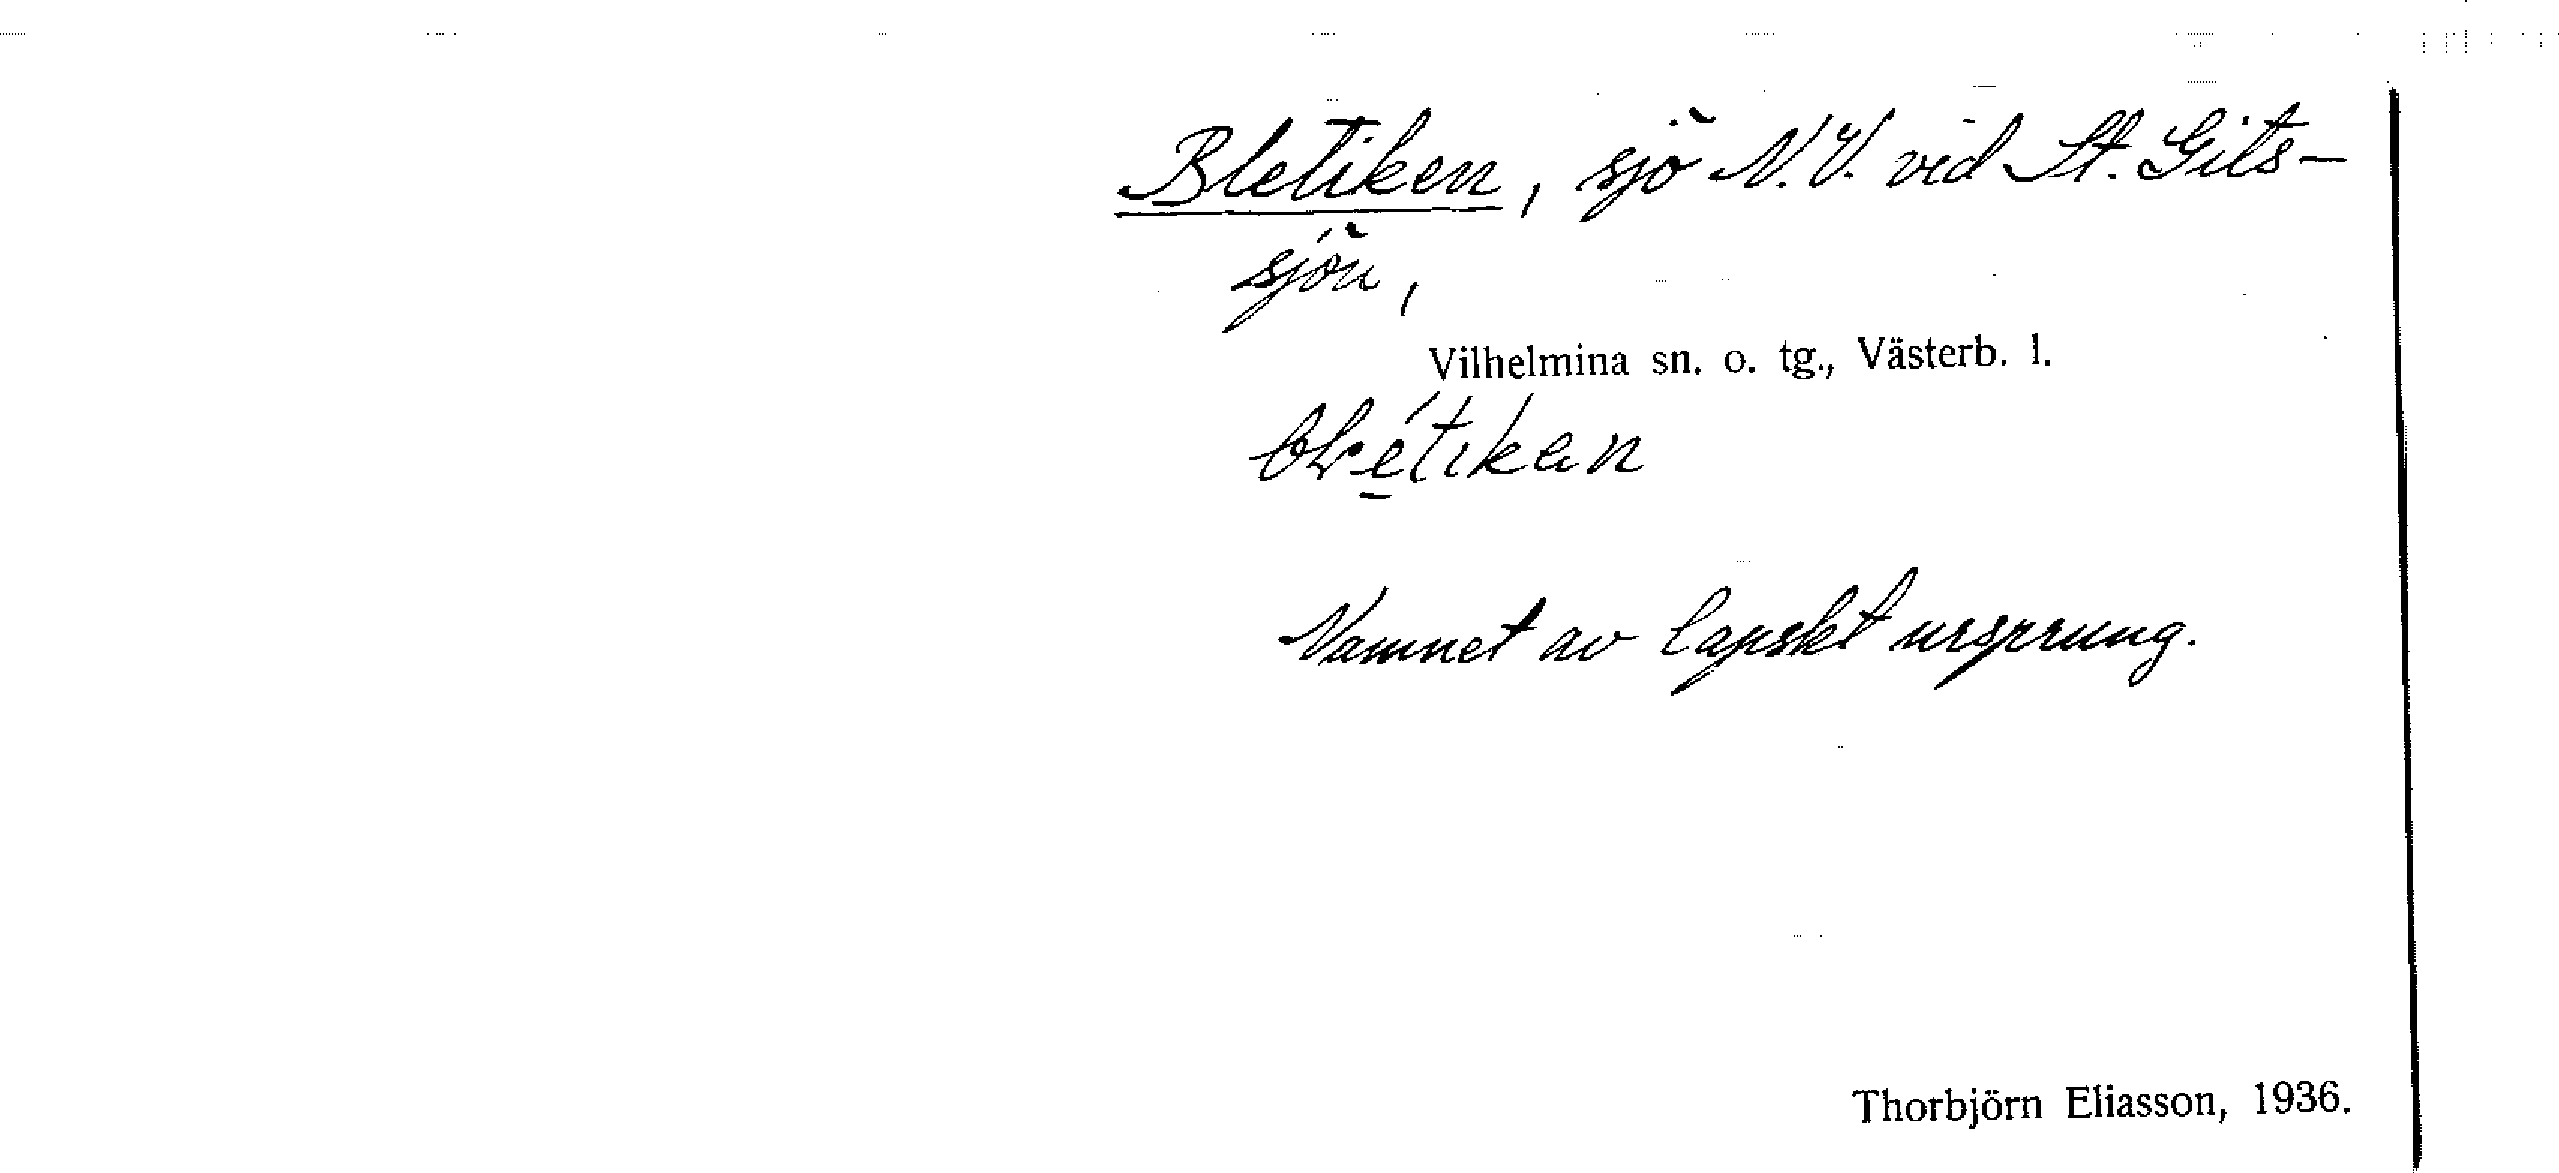 Bletiken, sjö N.V. vid St. Gits-
sjön,
Vilhelmina sn. o. tg., Västerb. l.
Namnet av lapskt ursprung.
Thorbjörn Eliasson, 1936.